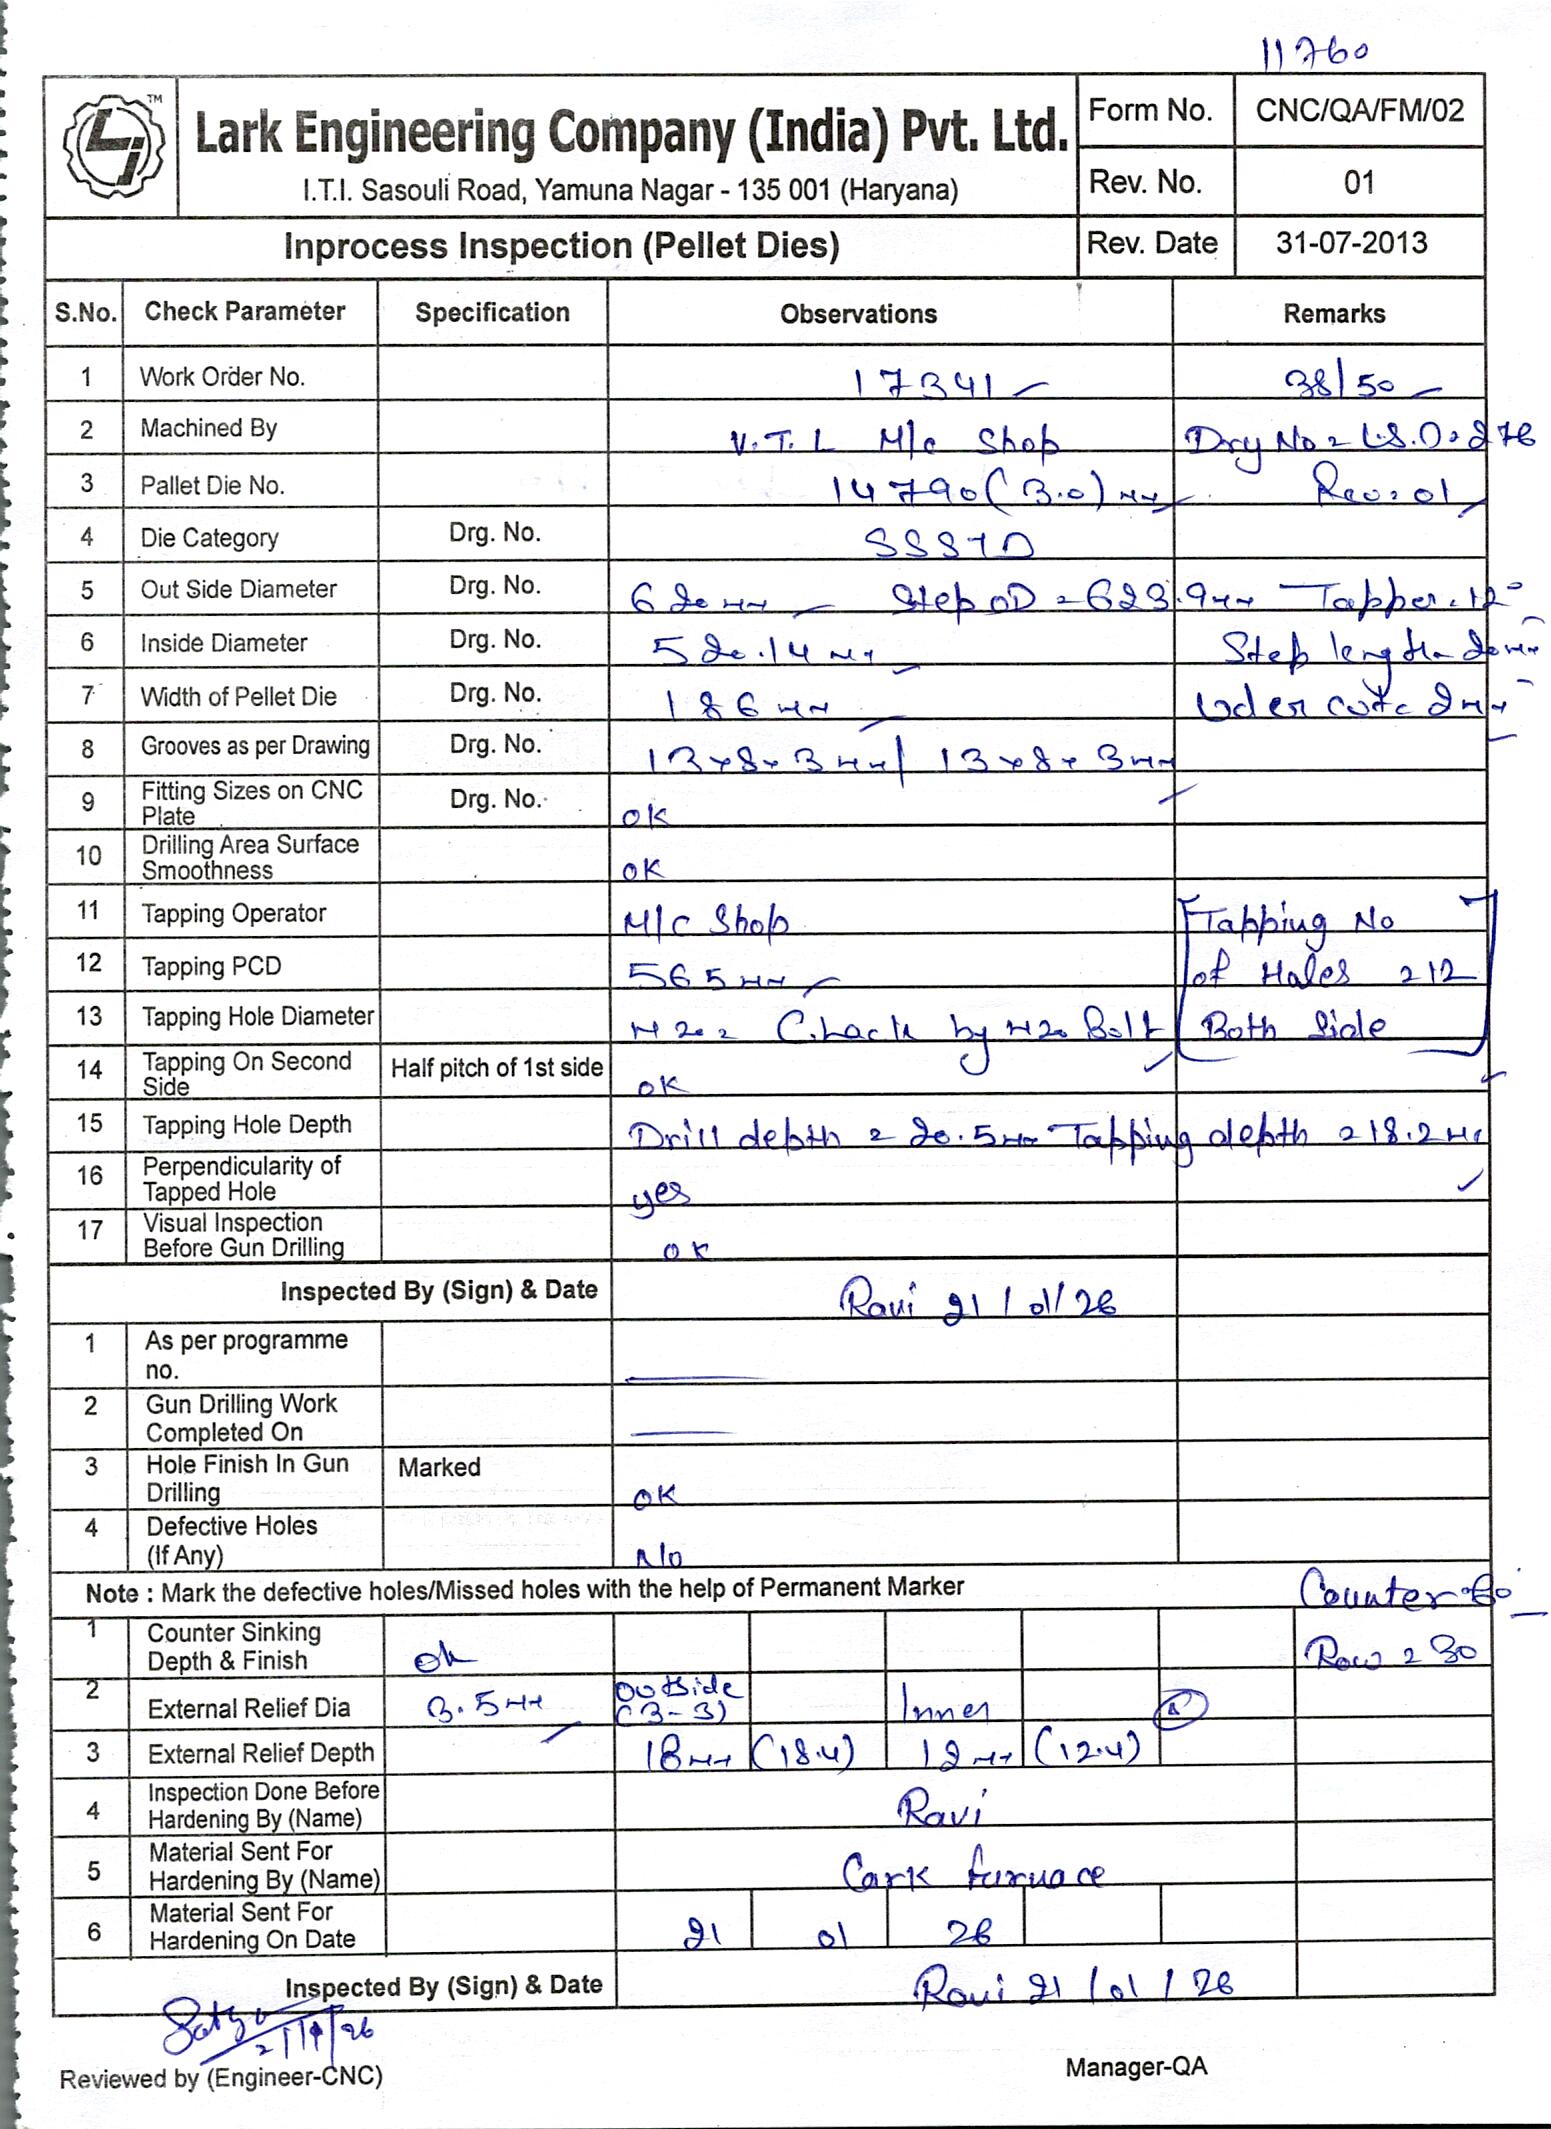 11760
TM
Lark Engineering Company (India) Pvt. Ltd.
I.T.I. Sasouli Road, Yamuna Nagar - 135 001 (Haryana)
Form No. CNC/QA/FM/02
Rev. No. 01
Inprocess Inspection (Pellet Dies) Rev. Date 31-07-2013
S.No. Check Parameter Specification Observations Remarks
1 Work Order No. 17341 38/50
2 Machined By V.T.L M/c Shop No = L.S.D = 276
3 Pallet Die No. 14790 (3.0) mm Rev = 01
4 Die Category Drg. No. SSSTD
5 Out Side Diameter Drg. No. 620 mm Step OD = 623.9 mm Tapper = 12°
6 Inside Diameter Drg. No. 520.14 mm Step length = 20 mm
7 Width of Pellet Die Drg. No. 186 mm cut = 2 mm
8 Grooves as per Drawing Drg. No. 13x8x3 mm / 13x8x3 mm
9 Fitting Sizes on CNC Plate Drg. No. ok
10 Drilling Area Surface Smoothness ok
11 Tapping Operator M/C Shop Tapping No
12 Tapping PCD 565 mm of Holes = 12
13 Tapping Hole Diameter M20 = Chack by M20 Bolt Both Side
14 Tapping On Second Side Half pitch of 1st side ok
15 Tapping Hole Depth Drill depth = 20.5 mm Tapping depth = 18.2 mm
16 Perpendicularity of Tapped Hole yes
17 Visual Inspection Before Gun Drilling ok
Inspected By (Sign) & Date Ravi 21/01/26
1 As per programme no.
2 Gun Drilling Work Completed On
3 Hole Finish In Gun Drilling Marked OK
4 Defective Holes (If Any) No
Note : Mark the defective holes/Missed holes with the help of Permanent Marker Counter
1 Counter Sinking Depth & Finish ok Row = 30
2 External Relief Dia 3.5 mm Outside (3-3) Inner
3 External Relief Depth 18 mm (18.4) 12 mm (12.4)
4 Inspection Done Before Hardening By (Name) Ravi
5 Material Sent For Hardening By (Name) Lark furnace
6 Material Sent For Hardening On Date 21 01 26
Inspected By (Sign) & Date Ravi 21/01/26
Reviewed by (Engineer-CNC) Manager-QA